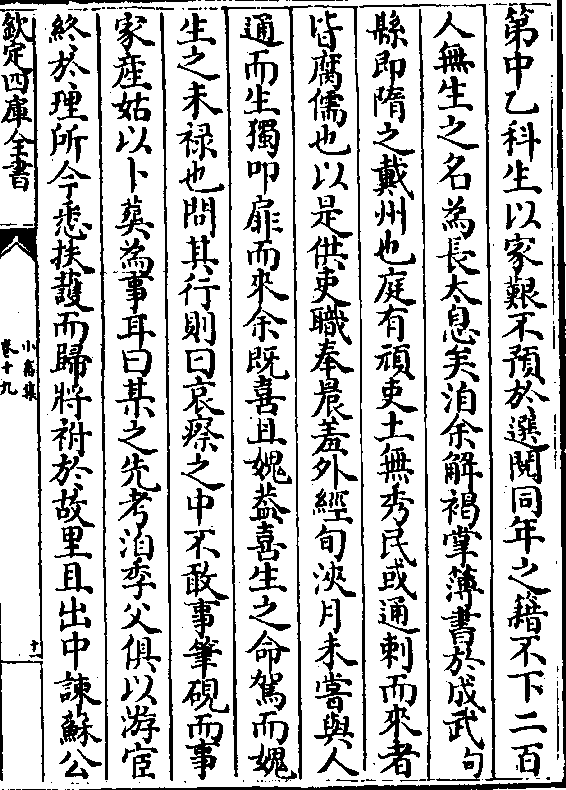 第中乙科生以家艱不預於選閱同年之籍不下二百
人無生之名為長太息矣洎余解褐掌薄書於成武句
縣即隋之戴州也庭有頑吏土無秀民或通刺而來者
皆腐儒也以是供吏職奉晨羞外經旬浹月未嘗與人
通而生獨叩扉而來余既喜且媿葢喜生之命駕而媿
生之未禄也問其行則曰哀瘵之中不敢事筆硯而事
家産姑以卜葬為事耳曰某之先考洎季父俱以游宦
終於理所今悉扶護而歸將祔於故里且出中諫蘇公
欽定四庫全書
小畜集
卷十九
十一